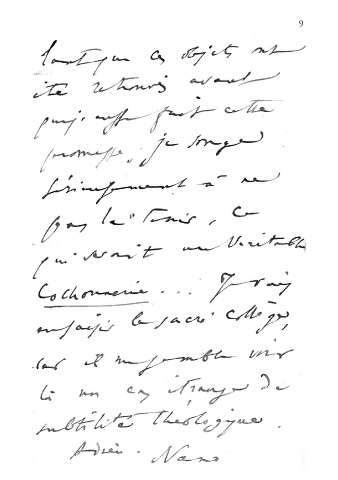 9
tant que ces objets ont
été retrouvés avant
que j'eusse fait cette
promesse, je songe
sérieusement à ne
pas la tenir, ce
qui serait une véritable
Cochonnerie... Je vais
en saisir le sacré collège,
car il me semble voir
là un cas étrange de
subtilité théologique.
Adieu.